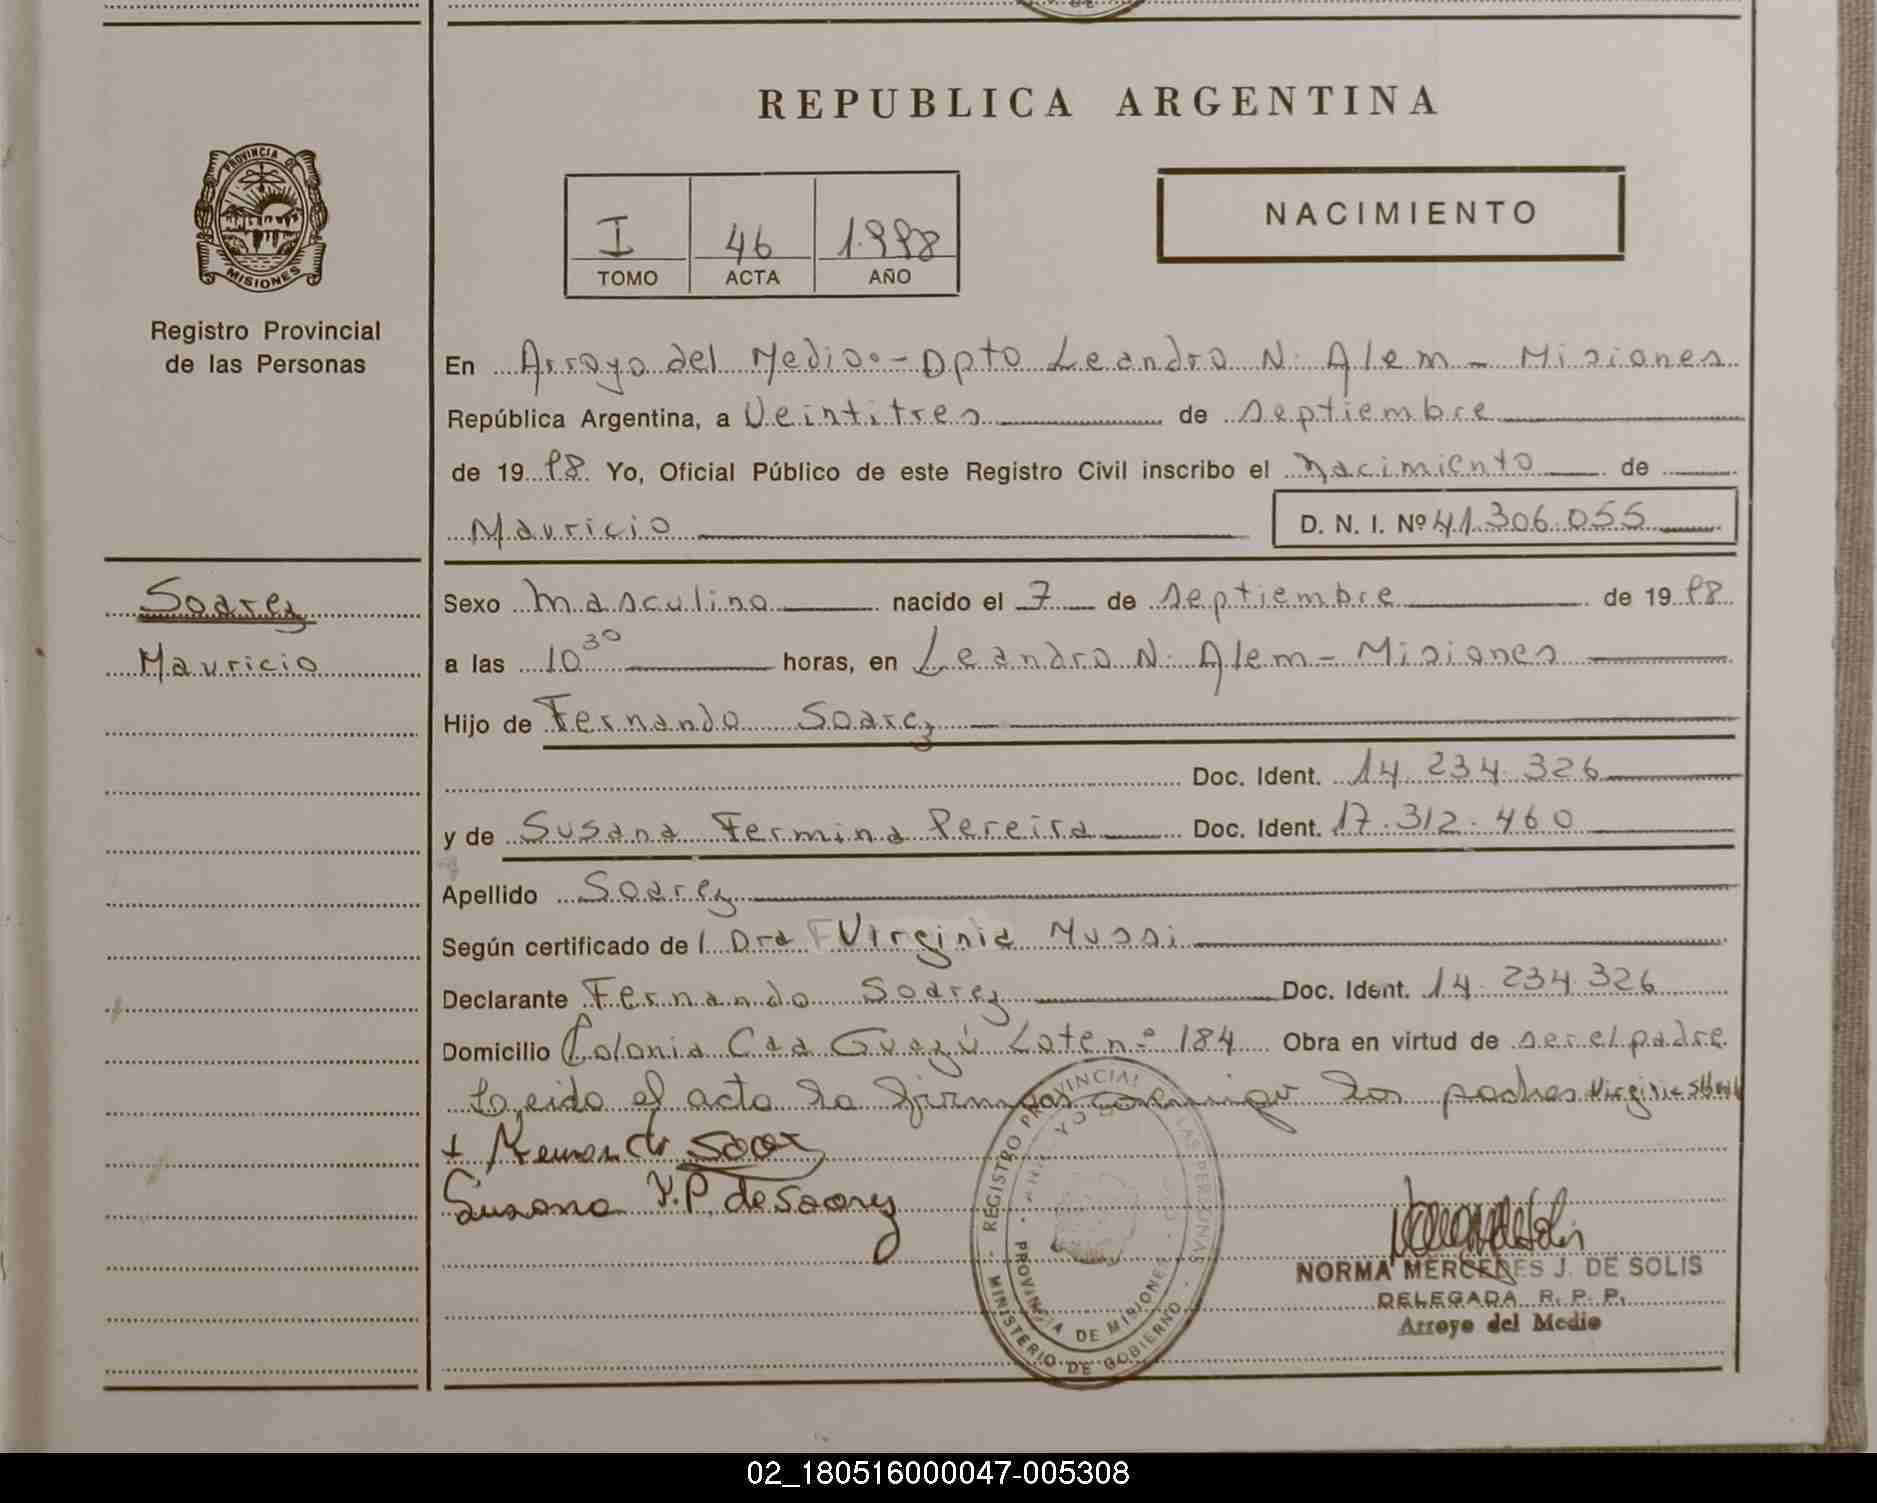 REPUBLICA ARGENTINA
PROVINCIA DE
MISIONES
Registro Provincial
de las Personas
I 46 1.998
TOMO ACTA AÑO
NACIMIENTO
En Arroyo del Medio.- Dpto Leandro N. Alem - Misiones
República Argentina, a Veintitres de septiembre
de 19 98 Yo, Oficial Público de este Registro Civil inscribo el nacimiento de
Mauricio D. N. I. Nº 41.306.055
Soarez
Mauricio
Sexo masculino nacido el 7 de septiembre de 19 98
a las 10 30 horas, en Leandro N. Alem - Misiones
Hijo de Fernando Soarez
Doc. Ident. 14.234.326
y de Susana Fermina Pereira Doc. Ident. 17.312.460
Apellido Soarez
Según certificado de l Dra Virginia Mussi
Declarante Fernando Soarez Doc. Ident. 14.234.326
Domicilio Colonia Caa Guazú Lote n:º 184 Obra en virtud de ser el padre
Leido el acta la firman conmigo los padres Virginia
Susana F.P. de Soarez
REGISTRO PROVINCIAL DE LAS PERSONAS
PROVINCIA DE MISIONES
MINISTERIO DE GOBIERNO
NORMA MERCEDES J. DE SOLIS
DELEGADA R. P. P.
Arroyo del Medio
02_180516000047-005308